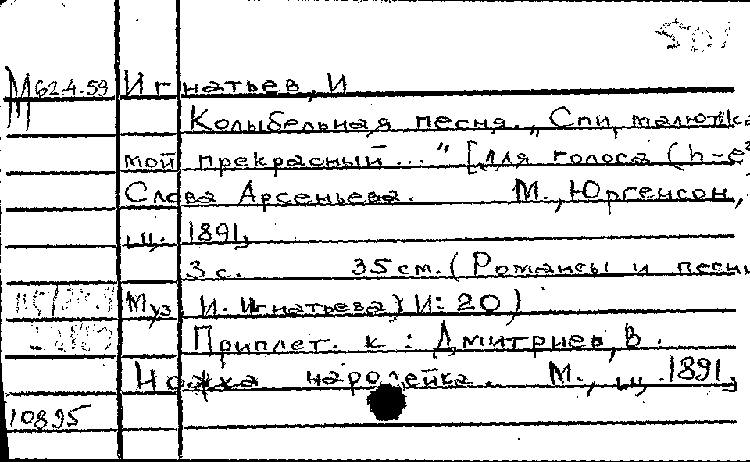 501
М 624.59 Игнатьев, И
Колыбельная песня. „Спи, малютка
мой прекрасный ..." [для голоса (h-e²
Слова Арсеньева. М., Юргенсон,
ц. 1891,
3 с. 35 см. (Романсы и песни
Муз. И. Игнатьева) (И: 20)
Приплет. к : Дмитриев, В.
М., ц. 1891,
10895